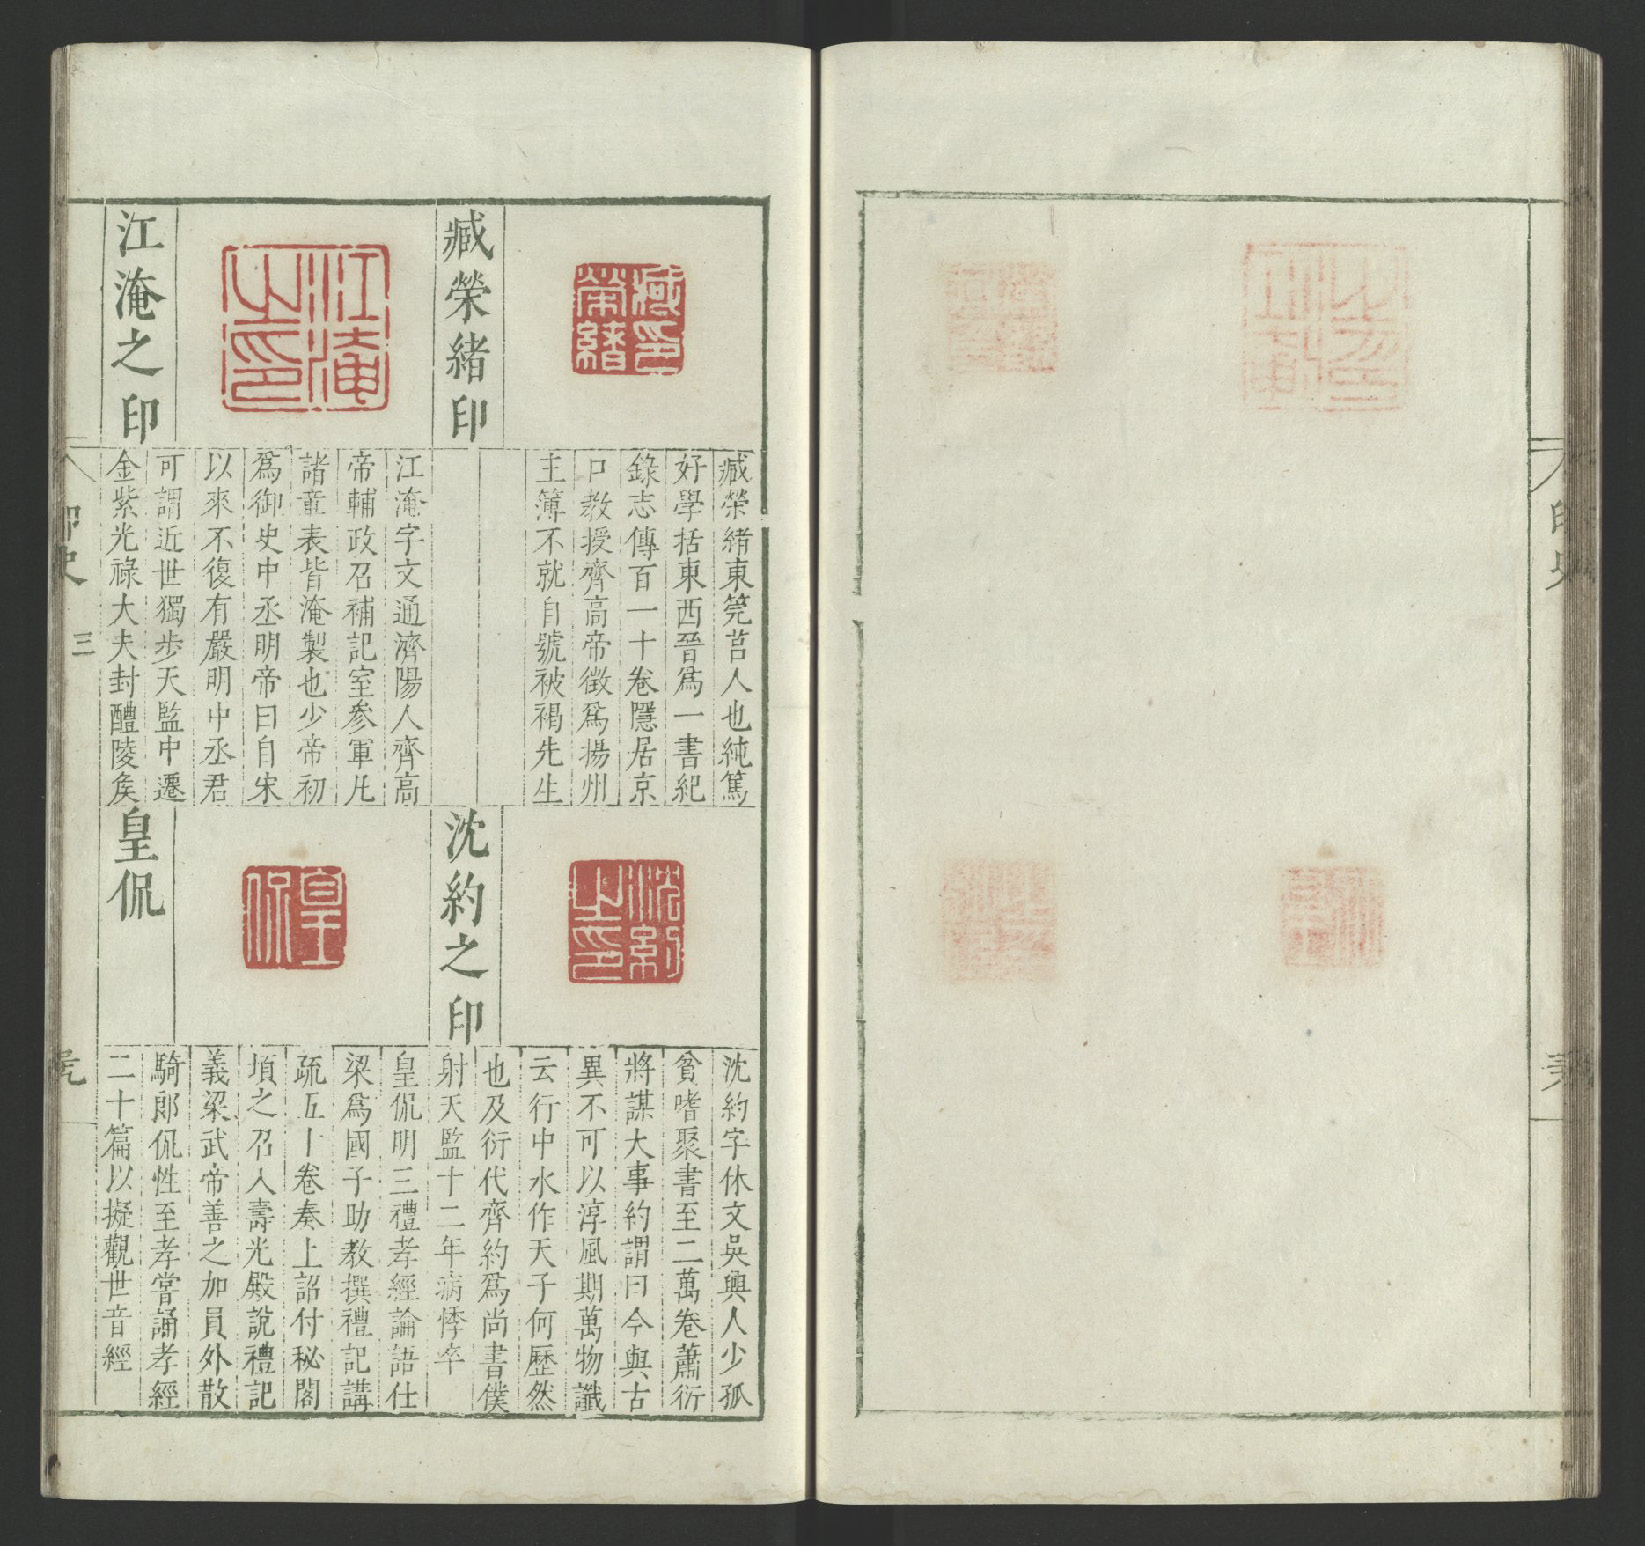 臧榮緒印
臧榮緒東筦莒人也純篤
好學括東西晉爲一書紀
錄志傳百一十卷隱居京
口教授齊高帝徵爲揚州
主簿不就自號被褐先生
江淹之印
江淹字文通濟陽人齊高
帝輔政召補記室參軍凡
諸章表皆淹製也少帝初
爲御史中丞明帝曰自宋
以來不復有嚴明中丞君
可謂近世獨步天監中遷
金紫光祿大夫封醴陵矦
沈約之印
沈約字休文吳興人少孤
貧嗜聚書至二萬卷蕭衍
將謀大事約謂曰今與古
異不可以淳風期萬物讖
云行中水作天子何歷然
也及衍代齊約爲尚書僕
射天監十二年病悸卒
皇侃
皇侃明三禮孝經論語仕
梁爲國子助教撰禮記講
疏五十卷奏上詔付秘閣
頃之召入壽光殿說禮記
義梁武帝善之加員外散
騎郎侃性至孝嘗誦孝經
二十篇以擬觀世音經
印史
三
臧印榮緒
江淹之印
沈約之印
皇侃